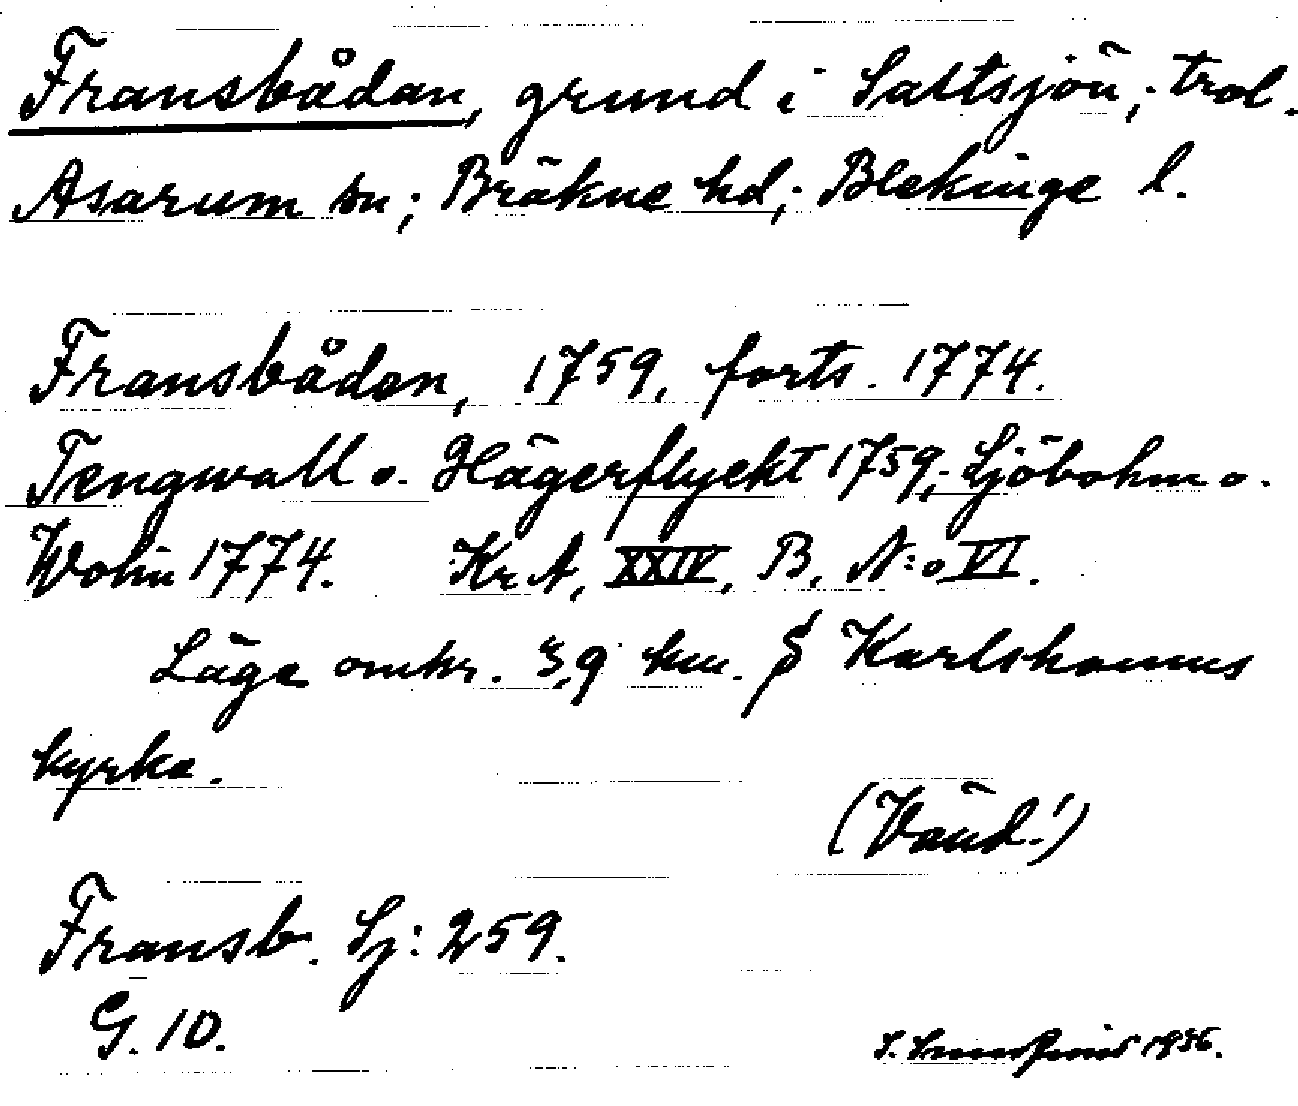 Fransbådan, grund i Saltsjön; trol.
Asarum sn; Bräkne hd; Blekinge l.
Fransbådan, 1759, forts. 1774.
Tengwall o. Hägerflyckt 1759; Sjöbohm o.
Wohn 1774. Kr A, XXIV, B, N:o VI.
Läge omkr. 3,9 km. S Karlshamns
kyrka.
(Vänd!)
Fransb. Sj: 259.
G. 10.
1936.